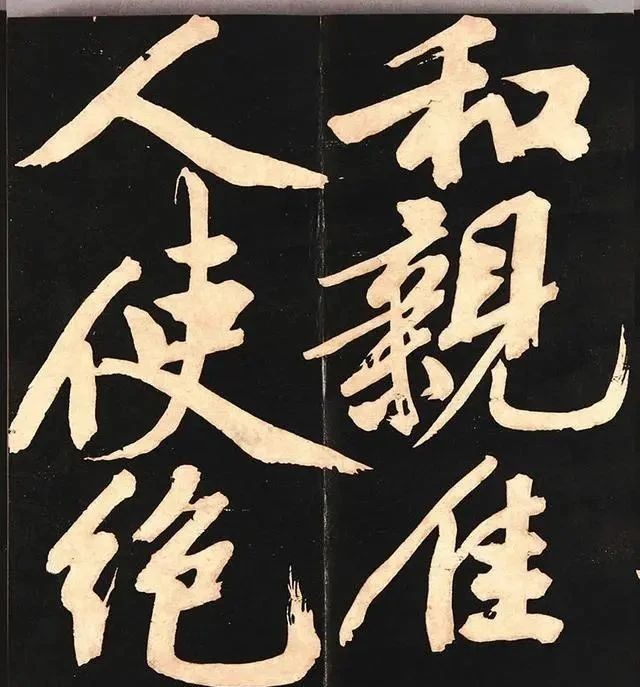 和親佳
人使绝